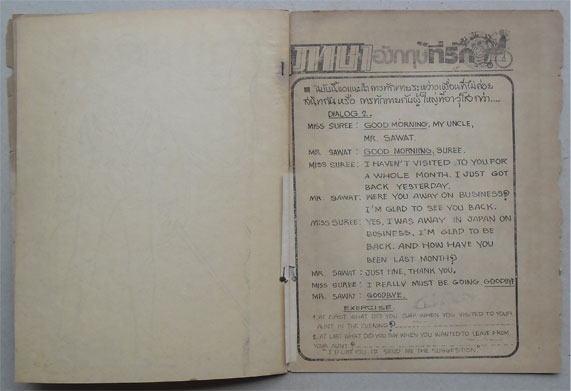 ภาษาอังกฤษที่รัก
ฉบับนี้ขอแนะนำการทักทายระหว่างเพื่อนที่ไม่ค่อย
สนิทกัน หรือ การทักทายกับผู้ใหญ่ที่อาวุโสกว่า....
DIALOG 2.
MISS SUREE : GOOD MORNING, MY UNCLE,
MR. SAWAT.
MR. SAWAT : GOOD MORNING, SUREE.
MISS SUREE : I HAVEN'T VISITED TO YOU FOR
A WHOLE MONTH. I JUST GOT
BACK YESTERDAY.
MR. SAWAT : WERE YOU AWAY ON BUSINESS?
I'M GLAD TO SEE YOU BACK.
MISS SUREE : YES, I WAS AWAY IN JAPAN ON
BUSINESS, I'M GLAD TO BE
BACK. AND HOW HAVE YOU
BEEN LAST MONTH?
MR. SAWAT : JUST FINE, THANK YOU.
MISS SUREE : I REALLY MUST BE GOING GOODBYE
MR. SAWAT : GOODBYE.
EXERCISE
1. AT FIRST WHAT DID YOU SAY WHEN YOU VISITED TO YOUR
AUNT IN THE EVENING?
2. AT LAST WHAT DID YOU SAY WHEN YOU WANTED TO LEAVE FROM
YOUR AUNT?
"I'D LIKE YOU TO SEND ME THE SUGGESTION."